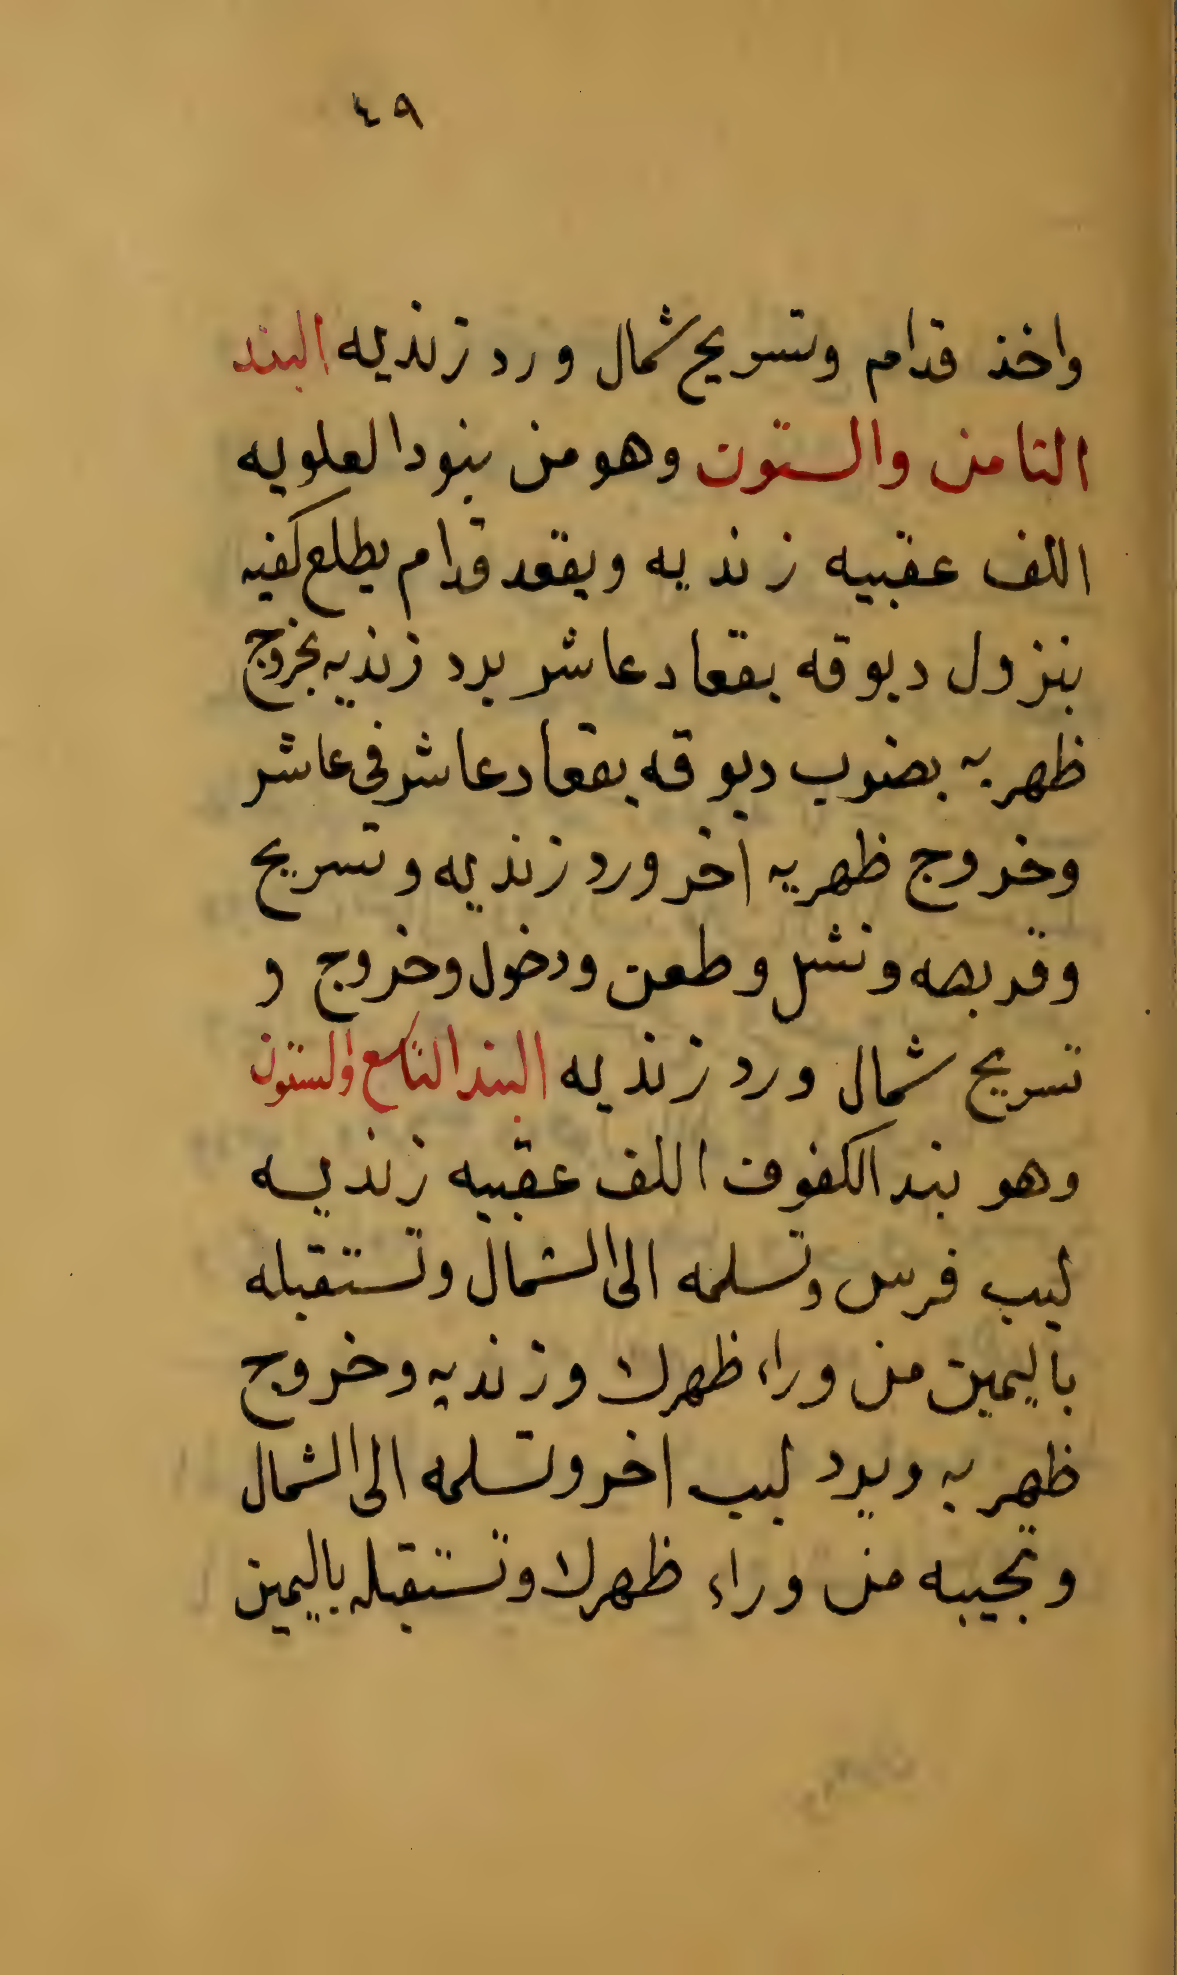 ٤٩
واخذ قدام وتسريح شمال ورد زنديه البند
الثامن والستون وهو من بنود العلويه
اللف عقبيه زنديه ويقعد قدام يطلع كفيه
بنزول دبوقه بقعاد عاشر يرد زنديه بخروج
ظهريه بضوب دبوقه بقعاد عاشر فى عاشر
وخروج ظهريه آخر ورد زنديه وتسريح
وقربصه ونشل وطعن ودخول وخروج و
تسريح شمال ورد زنديه البند التاسع والستون
وهو بند الكفوف اللف عقبيه زنديه
لبب فرس وتسلمه الى الشمال وتستقبله
باليمين من وراء ظهرك وزنديه وخروج
ظهريه ويرد لبب اخر وتسلمه الى الشمال
وتجيبه من وراء ظهرك وتستقبله باليمين